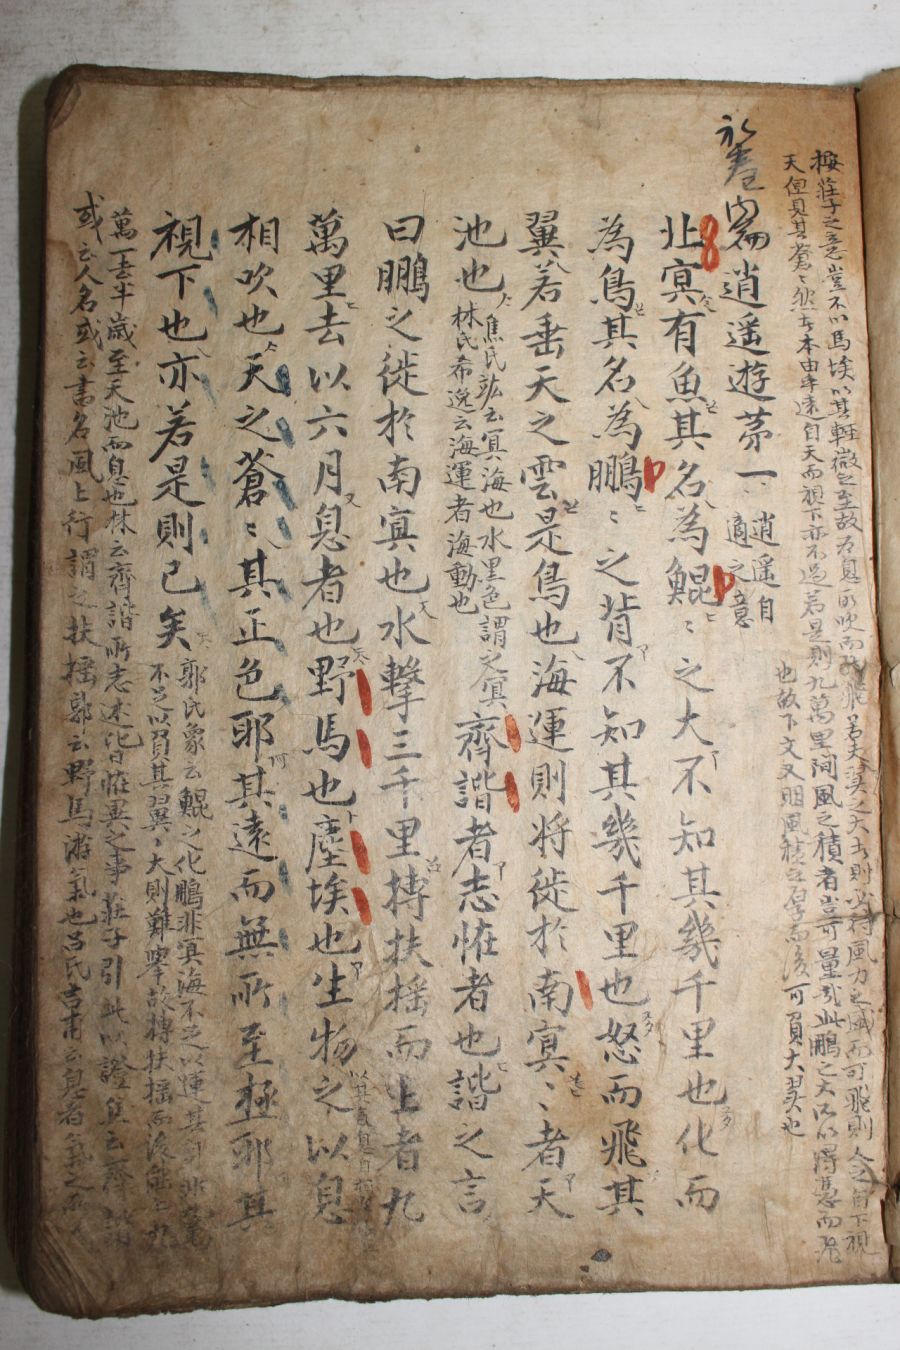 按莊子之意豈不以馬埃以其輕微之至故為息所吹而飛若夫之大者則必待風力之盛而可飛則人之自下視
天但見其蒼〻然者本由乎遠自天而視下亦不過若是則九萬里間風之積者豈可量哉此鵬之大以得憑而飛
也故下文又明風積之厚而後可負大翼也
內篇逍遥遊茅一
逍遥自
適之意
北㝠有魚其名為鯤〻之大不知其幾千里也化而
為鳥其名為鵬〻之背不知其幾千里也怒而飛其
翼若垂天之雲是鳥也海運則將徙於南㝠〻者天
池也
焦氏竑云㝠海也水黑色謂之㝠
林氏希逸云海運者海動也
齊諧者志恠者也諧之言
曰鵬之徙於南㝠也水擊三千里摶扶揺而上者九
萬里去以六月息者也野馬也塵埃也生物之以息
相吹也天之蒼〻其正色耶其遠而無所至極耶其
視下也亦若是則已矣
郭氏象云鯤之化鵬非㝠海不足以運其身非九
不足以負其翼〻大則難擧故摶扶揺而後能上九
萬一去半歲至天池而息也林云齊諧所志述皆恠異之事莊子引此以證
或云人名或云書名風上行謂之扶揺郭云野馬游氣也吕氏吉甫云息者氣之